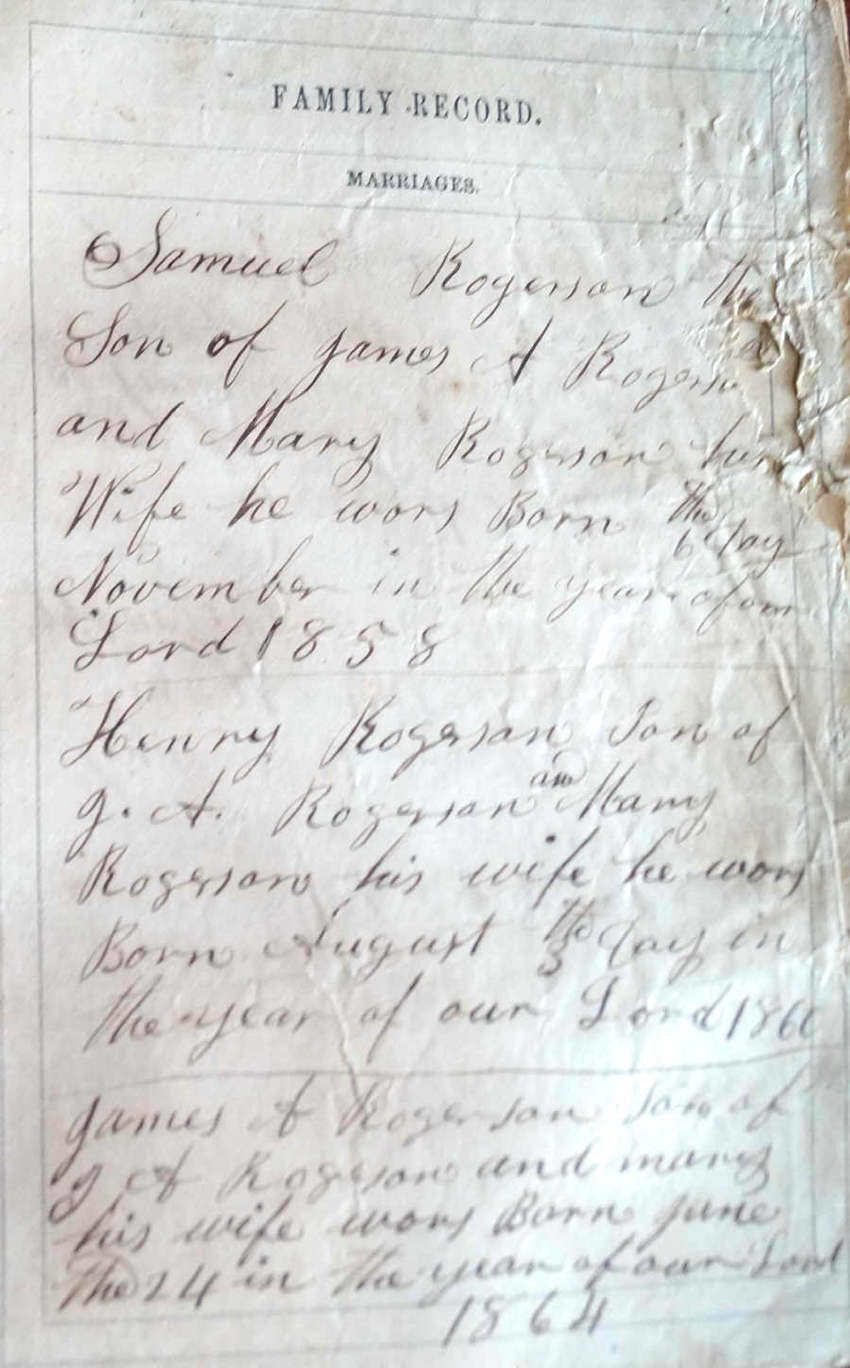 FAMILY RECORD.
MARRIAGES.
Samuel Rogerson the
Son of James A Rogerson
and Mary Rogerson his
Wife he wors Born the
6 day
November in the year of our
Lord 1858
Henry Rogerson Son of
J. A. Rogerson and Mary
Rogerson his wife he wors
Born August the 3 day in
the year of our Lord 1860
James A Rogerson son of
J A Rogerson and mary
his wife wors Born June
The 24 in the year of our Lord
1864